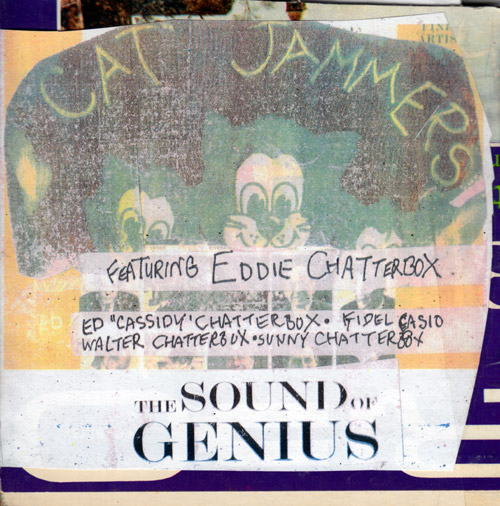 FINE
ARTIS
CAT JAMMERS
FEATURING EDDIE CHATTERBOX
ED "CASSIDY" CHATTERBOX • FIDEL CASIO
WALTER CHATTERBOX • SUNNY CHATTERBOX
THE SOUND OF
GENIUS